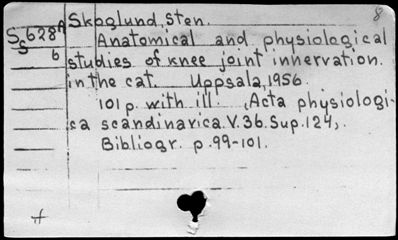 8
Skoglund, Sten.
S5628A Anatomical and physiological
S
6 studies of knee joint innervation.
in the cat. Uppsala, 1956.
101 p. with ill. (Acta physiologi-
ca scandinavica. V. 36. Sup. 124).
Bibliogr. p. 99-101.